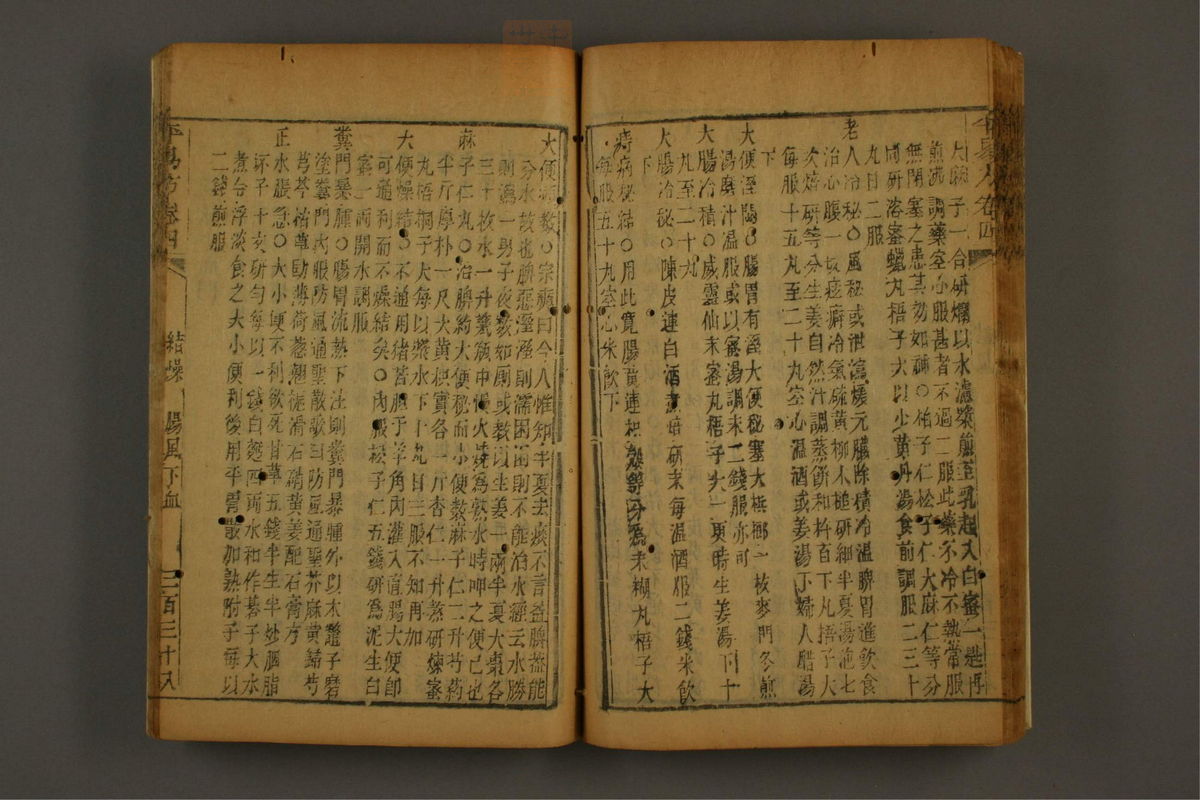 大麻子一合研爛以水濾漿煎至乳起入白蜜一匙再
煎沸調藥空心服甚者不過二服此藥不冷不熱常服
無閉塞之患其効如神○柏子仁松子仁大麻仁等分
同研溶蜜蠟丸梧子大以少黃丹湯食前調服二三十
丸日二服
老人冷秘○風秘或泄瀉煖元臟除積冷溫脾胃進飲食
治心腹一切痃癖冷氣硫黃柳木槌研細半夏湯泡七
次焙研等分生姜自然汁調蒸餅和杵百下丸梧子大
每服十五丸至二十丸空心溫酒或姜湯下婦人醋湯
下
大便溼閟○腸胃有溼大便秘塞大梹榔一枚麥門冬煎
湯磨汁温服或以蜜湯調末二錢服亦可
大腸冷積○威靈仙末蜜丸梧子大一更時生姜湯下十
丸至二十丸
大腸冷秘○陳皮連白酒煮焙研末每温酒服二錢米飲
下
痔病秘結○用此寛腸黃連枳殼等分爲末糊丸梧子大
每服五十丸空心米飲下
大便頻數○宗奭曰今人惟知半夏去痰不言益脾葢能
分水故也脾惡溼溼則濡困困則不能治水經云水勝
則瀉一男子夜數如厠或教以生姜一兩半夏大棗各
三十枚水一升瓷瓶中慢火燒爲熟水時呷之便已也
麻子仁丸○治脾約大便秘而小便數麻子仁二升芍藥
半斤厚朴一尺大黃枳實各一斤杏仁一升蒸研煉蜜
丸梧桐子大每以漿水下十丸日三服不知再加
大便燥結○不通用猪胆于羊角內灌入直腸大便即
可通利而不燥結矣○內服松子仁五錢研爲泥生白
蜜一兩開水調服
糞門暴腫○腸胃流熱下注則糞門暴腫外以木鼈子磨
塗糞門內服防風通聖散歌曰防風通聖芥麻黃歸芍
芎芩梔草勛薄荷葱翹梔滑石硝黃姜配石膏方
正水脹急○大小便不利欲死甘草五錢半生半炒胭脂
坏子十文研勻每以一錢白麪四兩水和作碁子大水
煮合浮淡食之大小便利後用平胃散加熟附子每以
二錢煎服
卷四
結燥
腸風下血
三百三十八